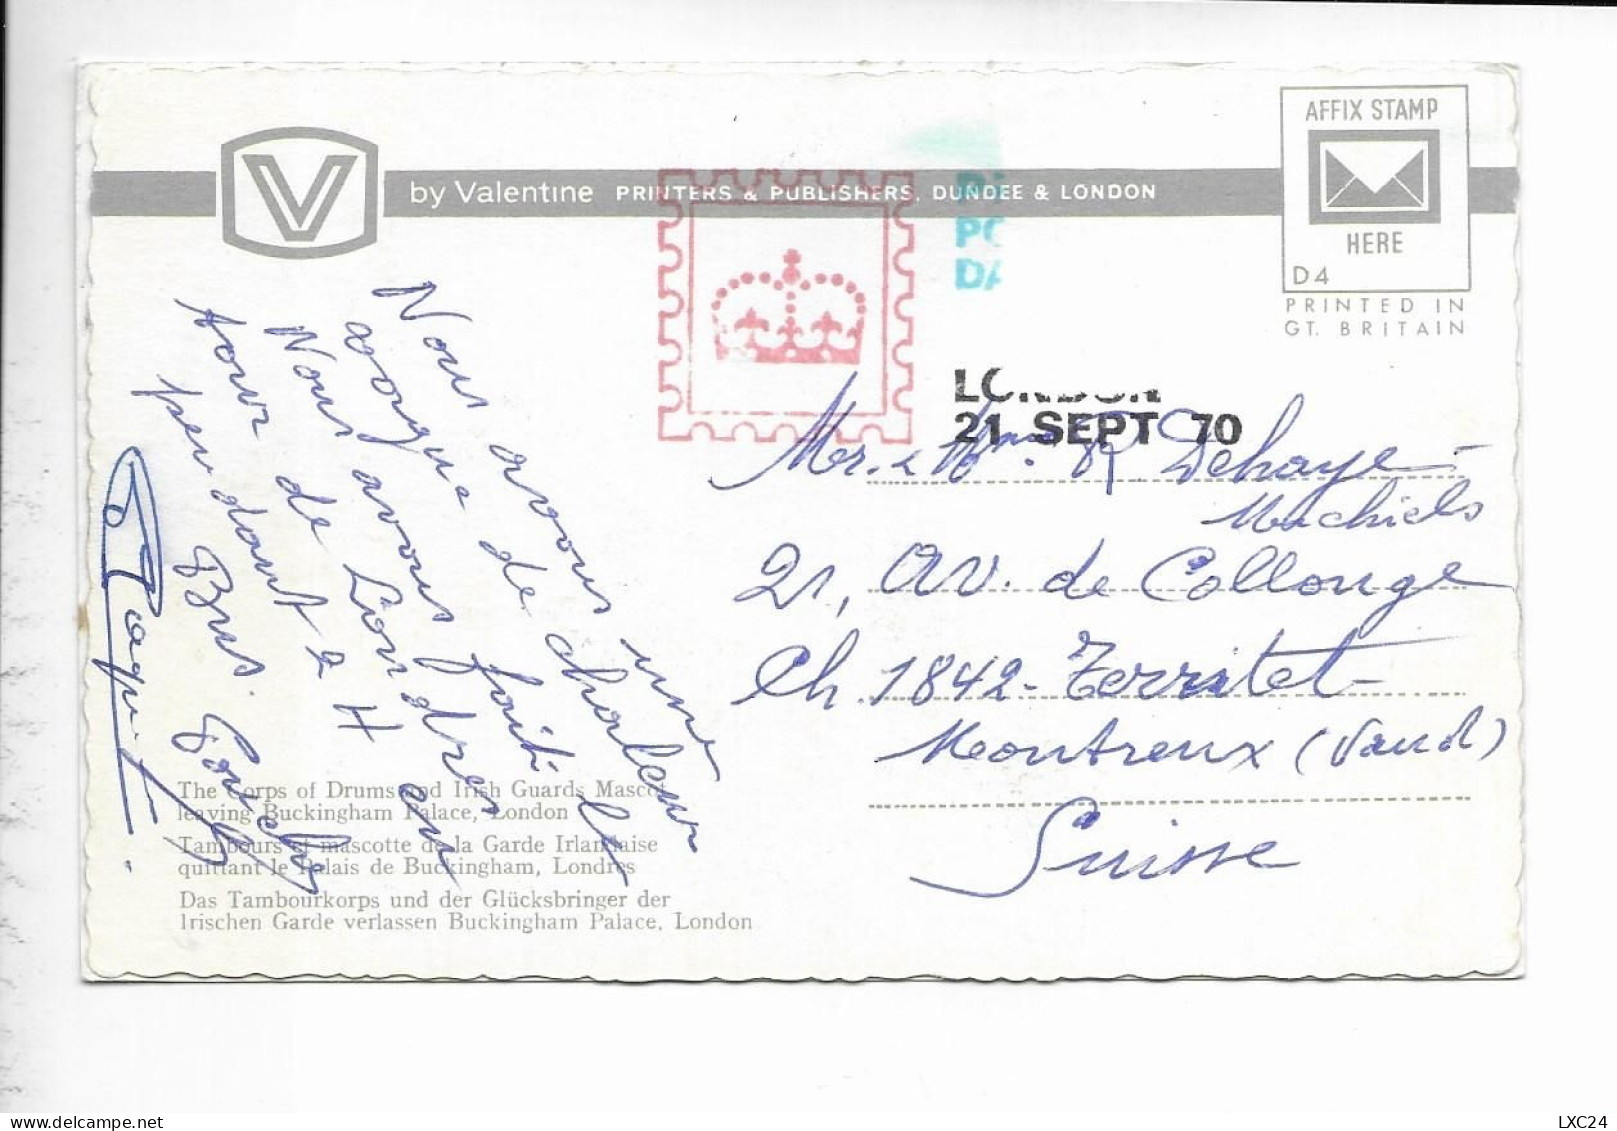 V by Valentine PRINTERS & PUBLISHERS, DUNDEE & LONDON
AFFIX STAMP
HERE
D4
PRINTED IN
GT. BRITAIN
PO
DA
LONDON
21 SEPT 70
Nous avons une
vague de chaleur
Nous avons fait le
tour de Londres en
pendant 2 H
Bus.
Mr. & Mme. R. Dehaye-
Machiels
21, av. de Collonge
Ch. 1842-Territet-
Montreux (Vaud)
Suisse
The Corps of Drums and Irish Guards Mascot
leaving Buckingham Palace, London
Tambours et mascotte de la Garde Irlandaise
quittant le Palais de Buckingham, Londres
Das Tambourkorps und der Glücksbringer der
Irischen Garde verlassen Buckingham Palace, London
LXC24